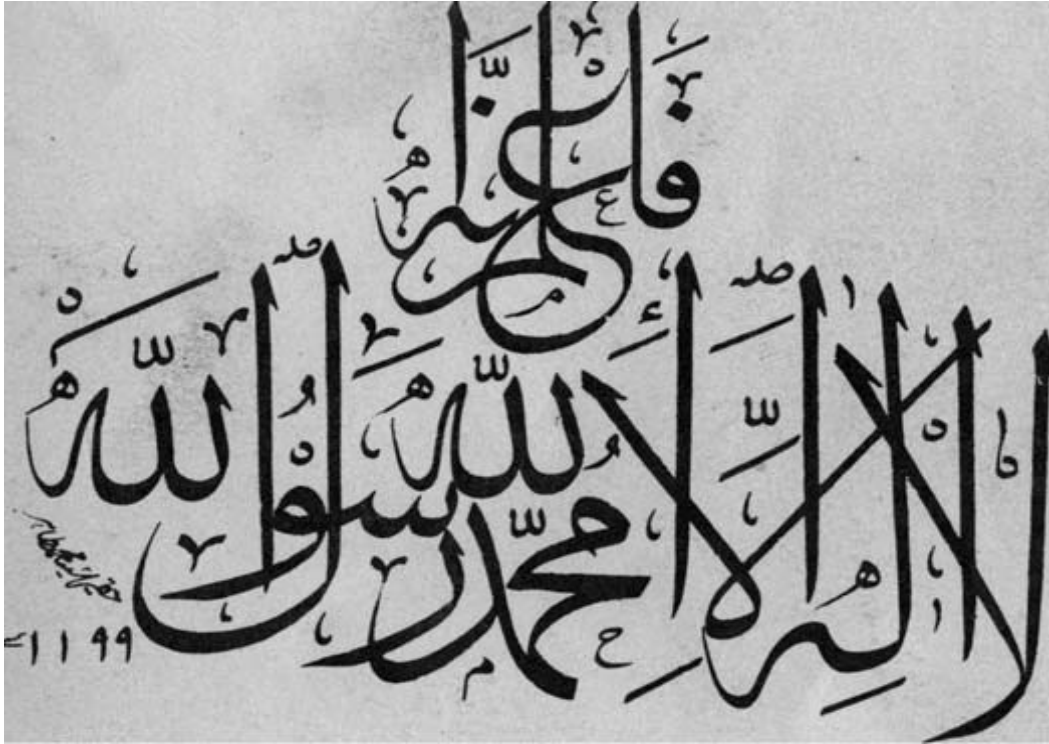 فَاعْلَمْ اَنَّهُ
لَا اِلٰهَ اِلَّا اللّٰهُ مُحَمَّدٌ رَسُوْلُ اللّٰهِ
١١٩٩